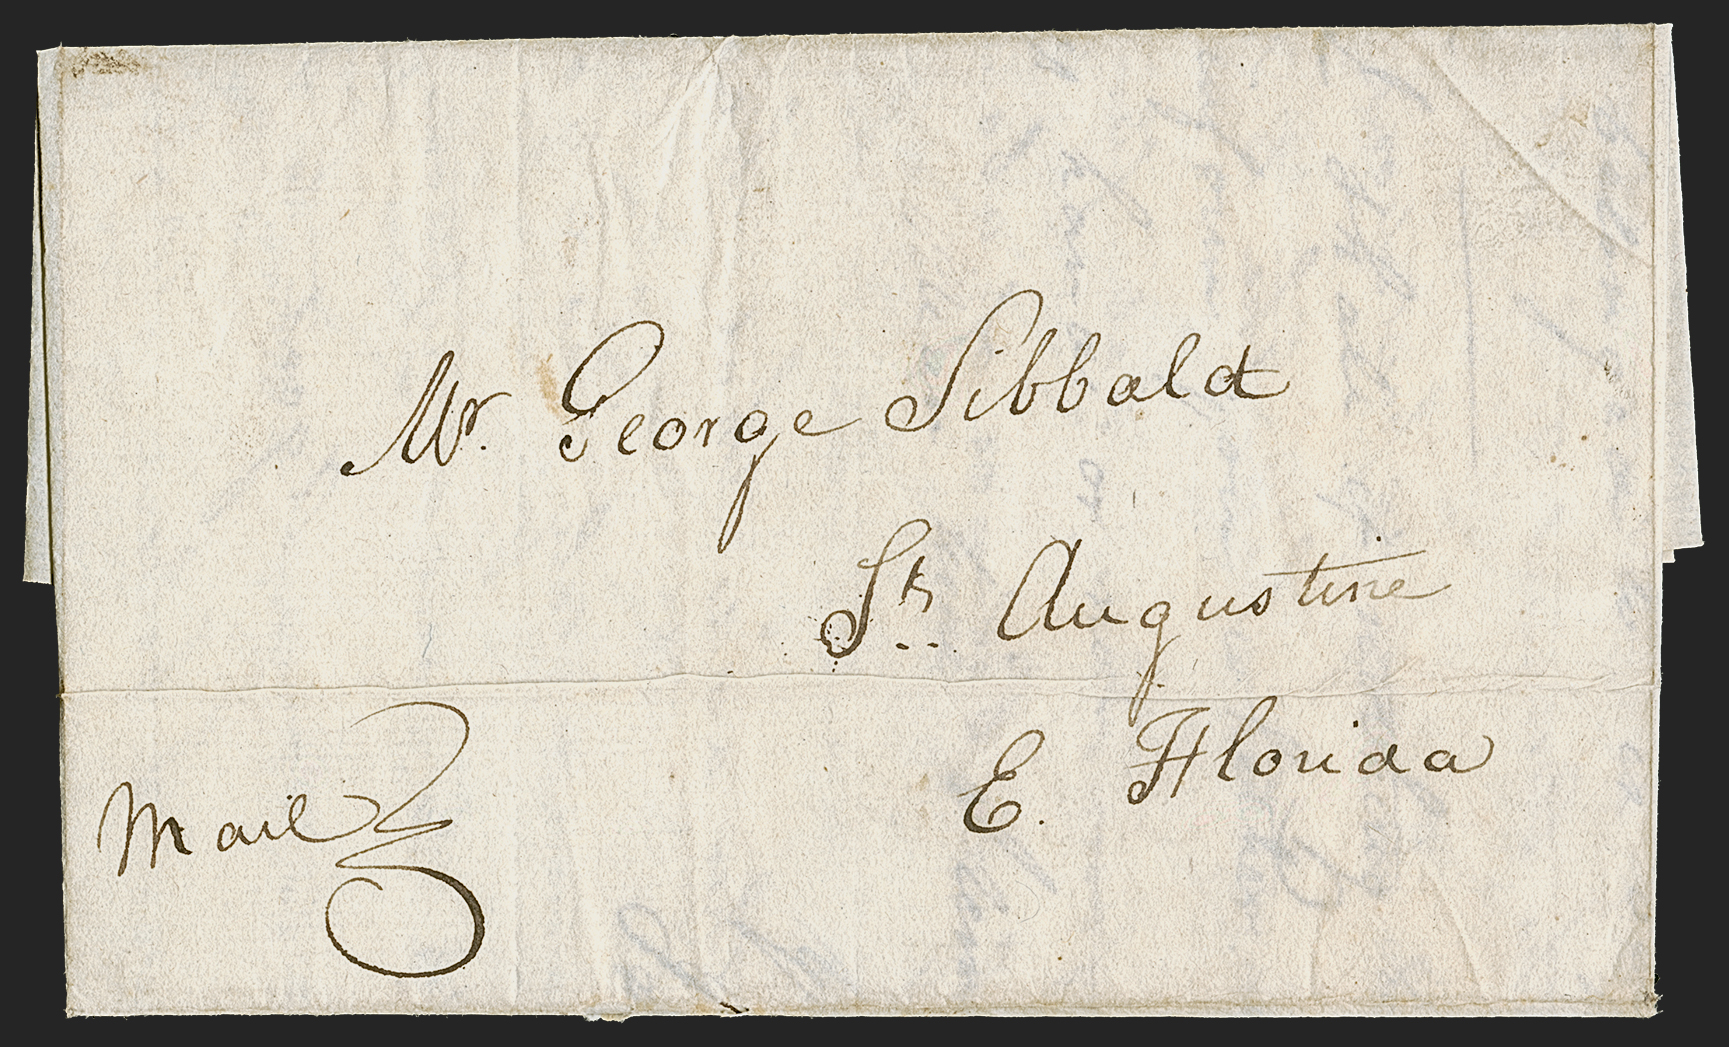 Mr. George Sibbald
St. Augustine
E. Florida
Mail